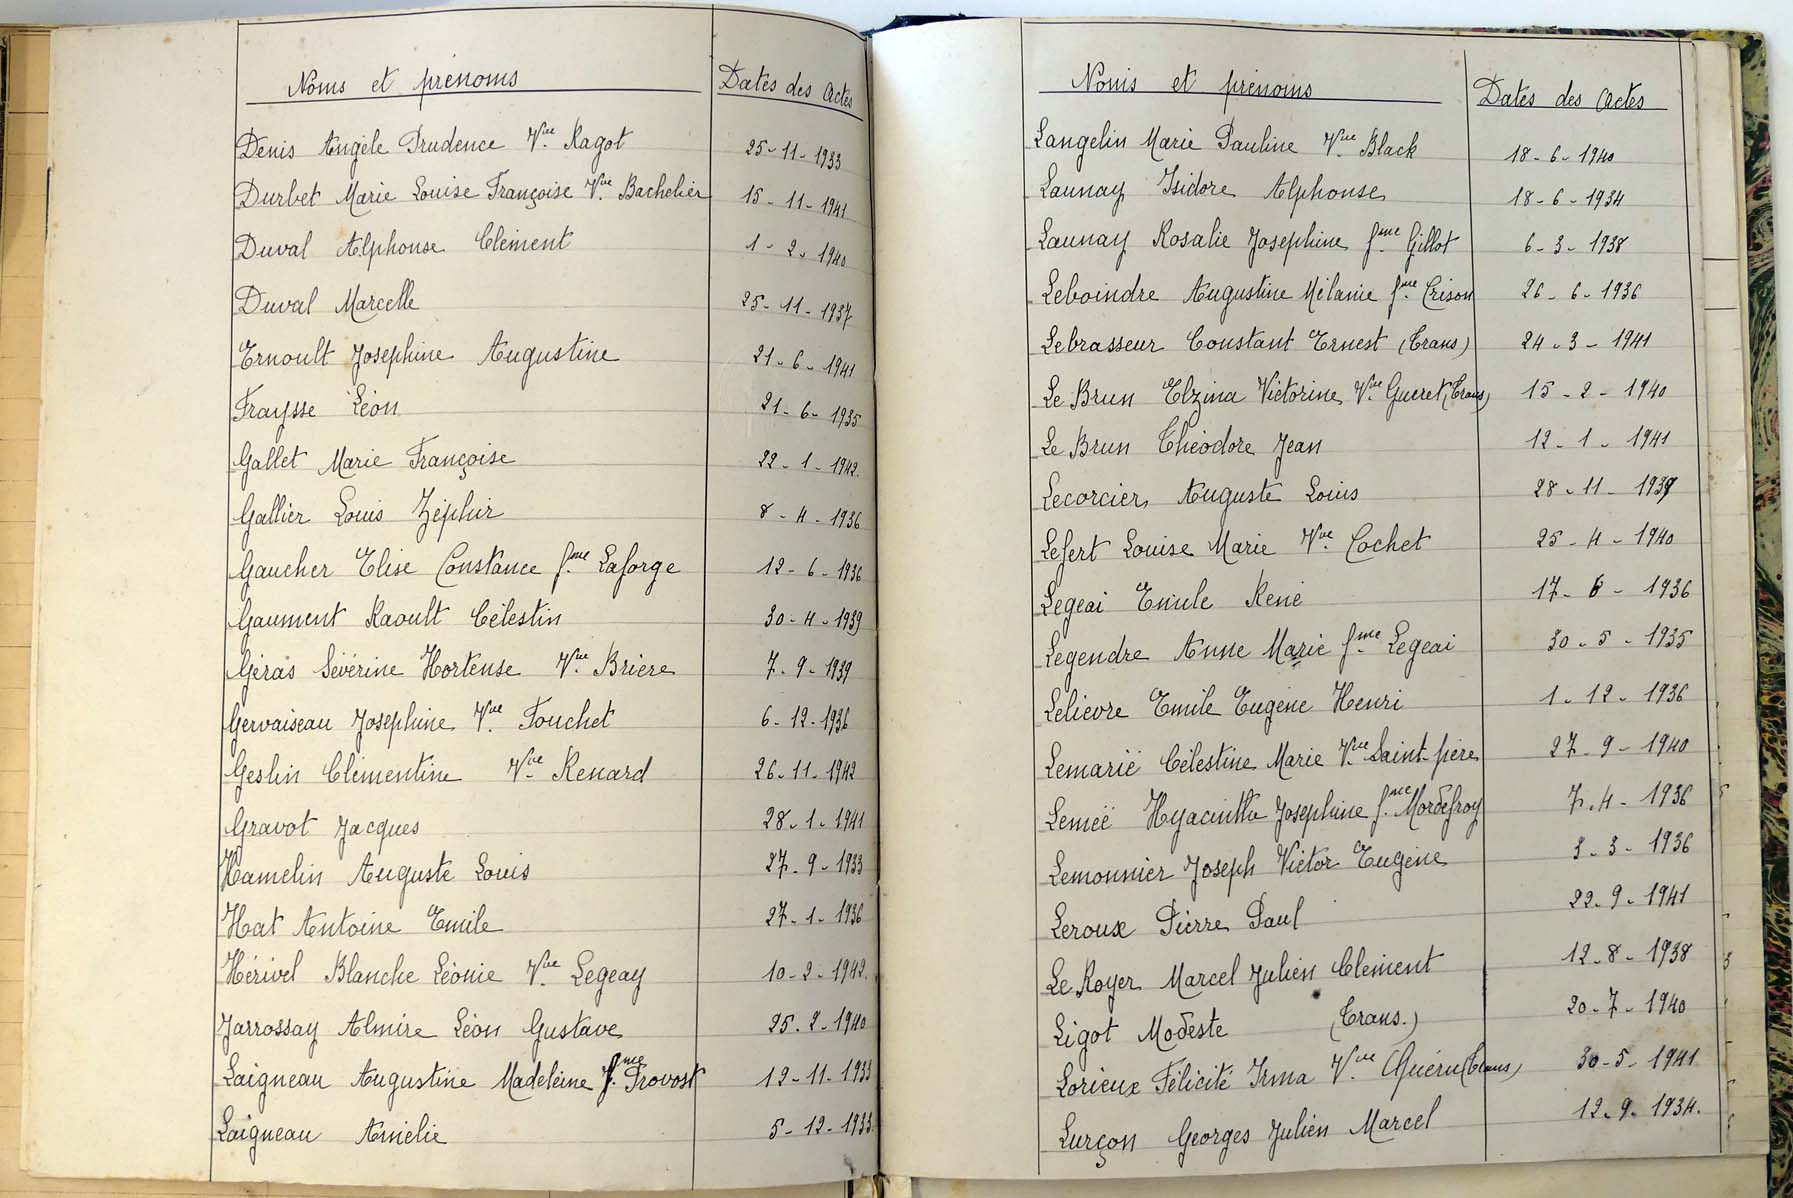 Noms et prénoms Dates des Actes
Denis Angèle Prudence Vve Ragot 25-11-1933
Durbet Marie Louise Françoise Vve Bachelier 15-11-1941
Duval Alphonse Clément 1-2-1940
Duval Marcelle 25-11-1937
Ernoult Joséphine Augustine 21-6-1941
Fraysse Léon 21-6-1935
Gallet Marie Françoise 22-1-1942
Gallier Louis Zéphir 8-4-1936
Gaucher Elise Constance fme Laforge 12-6-1936
Gaument Raoult Célestin 30-4-1939
Géras Sévérine Hortense Vve Brière 7-9-1939
Gervaiseau Joséphine Vve Fouchet 6-12-1936
Geslin Clémentine Vve Renard 26-11-1942
Gravot Jacques 28-1-1941
Hamelin Auguste Louis 27-9-1933
Hat Antoine Emile 27-1-1936
Hérivel Blanche Léonie Vve Legeay 10-2-1942.
Jarrossay Almire Léon Gustave 25-2-1940
Laigneau Augustine Madeleine fme Provost 12-11-1933
Laigneau Amélie 5-12-1933.
Noms et prénoms Dates des Actes
Langelin Marie Pauline Vve Black 18-6-1940
Launay Isidore Alphonse 18-6-1934
Launay Rosalie Joséphine fme Gillot 6-3-1938
Leboindre Augustine Mélanie fme Crison 26-6-1936
Lebrasseur Constant Ernest (Trans) 24-3-1941
Le Brun Elzina Victorine Vve Gueret (Trans) 15-2-1940
Le Brun Théodore Jean 12-1-1941
Lecorcier Auguste Louis 28-11-
Lefert Louise Marie Vve Cochet 25-4-1940
Legeai Emile René 17-6-1936
Legendre Anne Marie fme Legeai 30-5-1935
Lelièvre Emile Eugène Henri 1-12-1936
Lemarié Célestine Marie Vve Saint-père 27-9-1940
Lemée Hyacinthe Joséphine fme Mordefroy 7-4-1936
Lemonnier Joseph Victor Eugène 3-3-1936
Leroux Pierre Paul 22-9-1941
Le Royer Marcel Julien Clément 12-8-1938
Ligot Modeste (Trans.) 20-7-1940
Lorieux Félicité Irma Vve Guérin (Trans) 30-5-1941
Lurçon Georges Julien Marcel 12-9-1934.